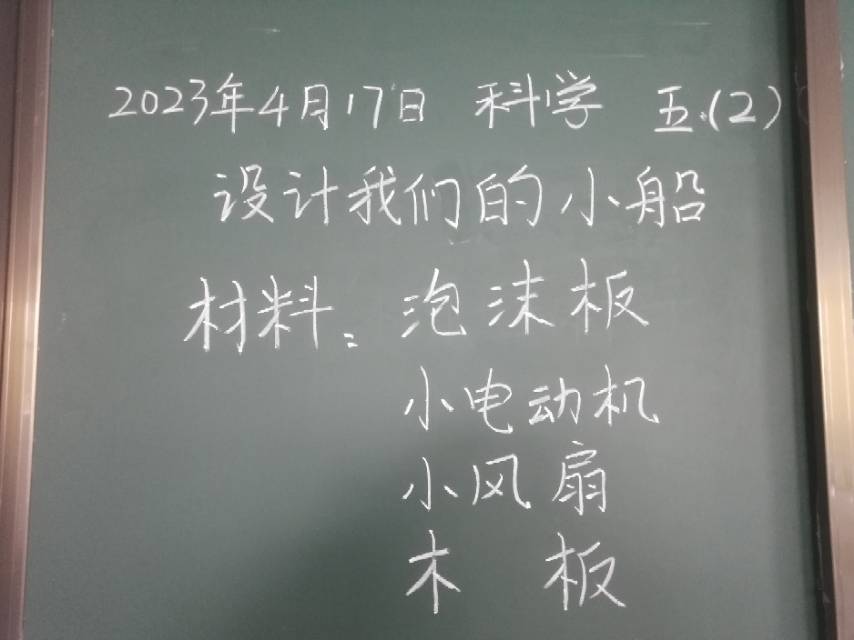 2023年4月17日 科学 五.(2)
设计我们的小船
材料：泡沫板
小电动机
小风扇
木 板